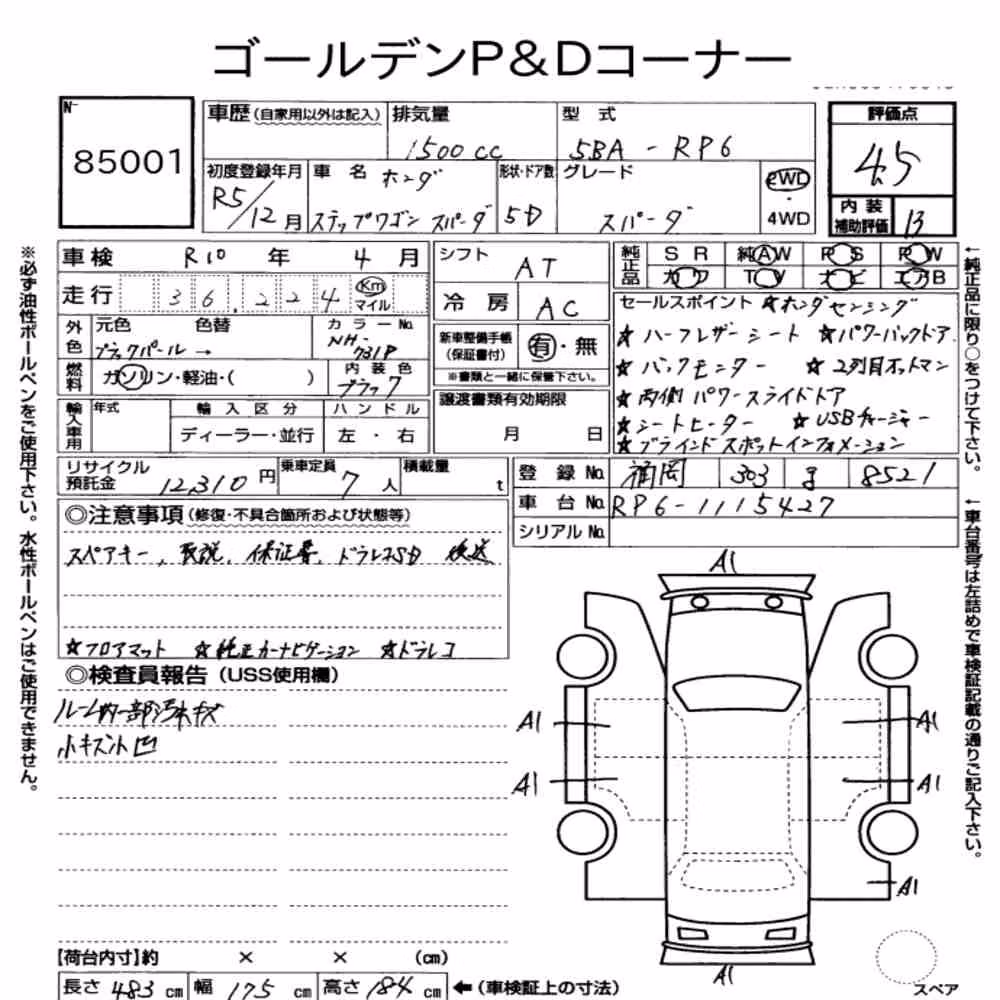 ゴールデンP&Dコーナー
No 85001
車歴(自家用以外は記入) 排気量 型式 評価点
1500cc 5BA-RP6 4.5
初度登録年月 車名 ホンダ 形状・ドア数 グレード 2WD・4WD
R5/12月 ステップワゴン スパーダ 5D スパーダ
内装補助評価 B
車検 R10年 4月 シフト AT 純正品 SR 純AW PS PW
カワ TV ナビ エアB
走行 36,224 Km マイル 冷房 AC
セールスポイント ☆ホンダセンシング
外色 元色 色替 カラーNo. NH-731P
ブラックパール→
新車整備手帳(保証書付) 有・無
※書類と一緒に保管下さい。
☆ハーフレザーシート ☆パワーバックドア
☆バックモニター ☆2列目オットマン
☆両側パワースライドドア
☆シートヒーター ☆USBチャージャー
☆ブラインドスポットインフォメーション
燃料 ガソリン・軽油・( ) 内装色 ブラック
輸入車用 年式 輸入区分 ハンドル 譲渡書類有効期限
ディーラー・並行 左・右 月 日
リサイクル預託金 12,310円 乗車定員 7人 積載量 t
登録No. 福岡 303 8521
車台No. RP6-1115427
シリアルNo.
◎注意事項(修復・不具合箇所および状態等)
スペアキー、取説、保証書、ドラレコSD 後送
☆フロアマット ☆純正カーナビゲーション ☆ドラレコ
◎検査員報告(USS使用欄)
ルーム内一部汚れキズ
小キズ小凹
A1
A1 A1
A1 A1
A1
A1
スペア
【荷台内寸】約 × × (cm)
長さ 483cm 幅 175cm 高さ 184cm ←(車検証上の寸法)
※必ず油性ボールペンをご使用下さい。水性ボールペンはご使用できません。
←純正品に限り○をつけて下さい。
←車台番号は左詰めで車検証記載の通りご記入下さい。